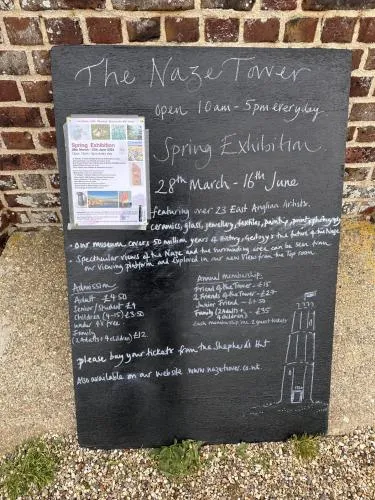 The Naze Tower
open 10am - 5pm everyday
Spring Exhibition
28th March - 16th June
Spring Exhibition
featuring over 23 East Anglian Artists.
ceramics, glass, jewellery, textiles, painting, prints, photography
- Our museum covers 50 million years of History, Geology & the future of the Naze
- Spectacular views of the Naze and the surrounding area can be seen from
our viewing platform and explored in our new View from the Top room
Admission
Adult £4.50
Senior/Student £4
Children (4-15) £3.50
under 4's free
Family
(2 Adults + 4 children) £12
Annual membership
Friend of the Tower - £15
2 Friends of the Tower - £27
Junior Friend - £6.50
Family (2 Adults +
4 children) - £35
Each membership inc 2 guest tickets
please buy your tickets from the Shepherds Hut
Also available on our website www.nazetower.co.uk